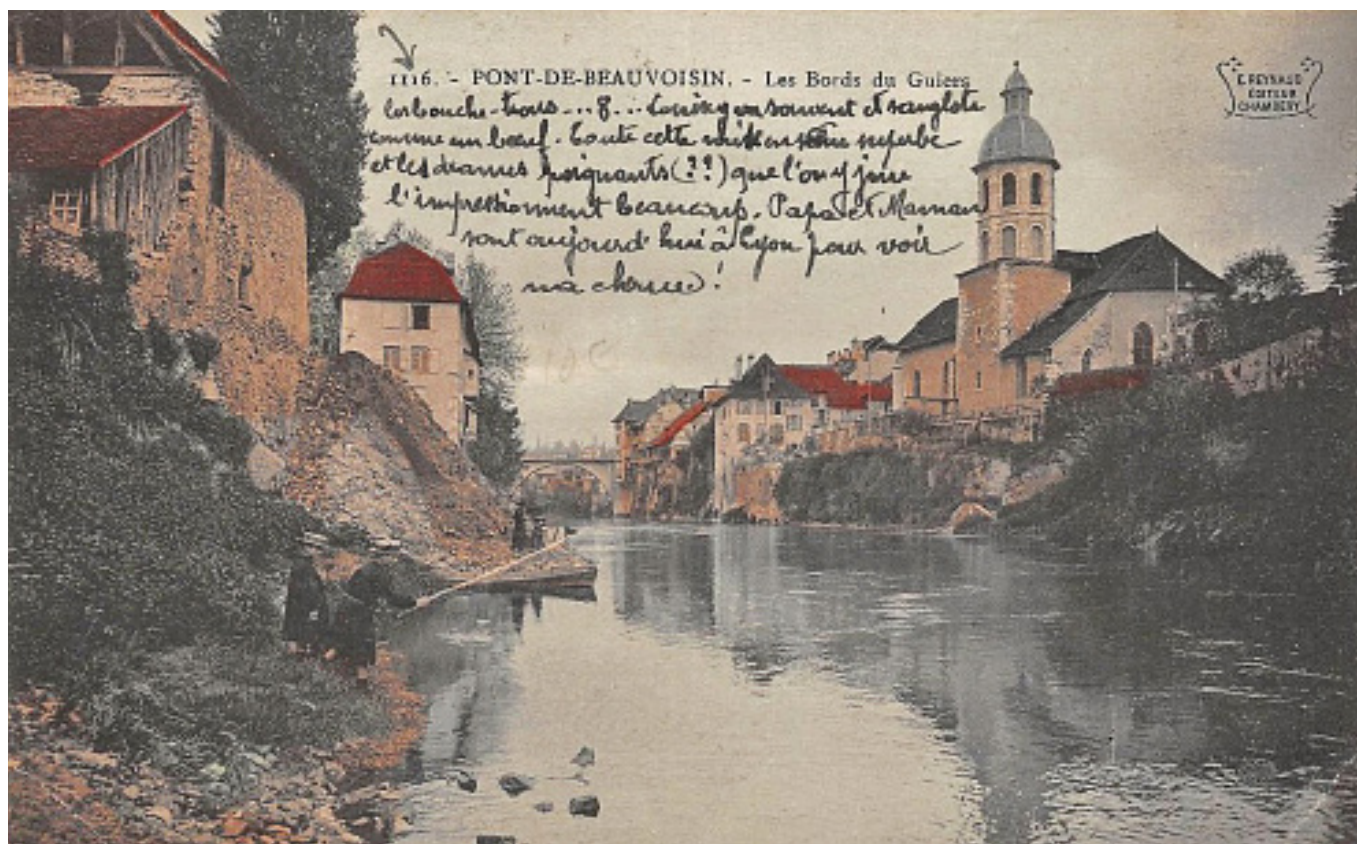 1116. - PONT-DE-BEAUVOISIN. - Les Bords du Guiers
E. REYNAUD
EDITEUR
CHAMBERY
les bouche-trous ... y souvent et sanglote
comme un bœuf. Toute cette mise en scène superbe
et les drames poignants (??) que l'on y joue
l'impressionnent beaucoup. Papa et Maman
sont aujourd'hui à Lyon pour voir
ma